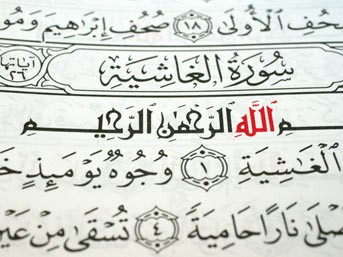 صُحُفِ ٱلْأُولَىٰ ١٨ صُحُفِ إِبْرَٰهِيمَ وَمُو
سُورَةُ الْغَاشِيَةِ آيَاتُهَا ٢٦
ـمِ ٱللَّهِ ٱلرَّحْمَٰنِ ٱلرَّحِيمِ
ٱلْغَٰشِيَةِ ١ وُجُوهٌ يَوْمَئِذٍ خَ
صْلَىٰ نَارًا حَامِيَةً ٤ تُسْقَىٰ مِنْ عَيْنٍ